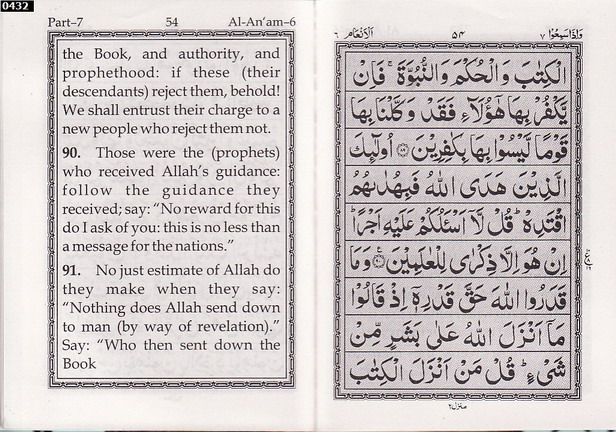 0432
Part–7 54 Al-An’am–6
the Book, and authority, and
prophethood: if these (their
descendants) reject them, behold!
We shall entrust their charge to a
new people who reject them not.
90. Those were the (prophets)
who received Allah’s guidance:
follow the guidance they
received; say: “No reward for this
do I ask of you: this is no less than
a message for the nations.”
91. No just estimate of Allah do
they make when they say:
“Nothing does Allah send down
to man (by way of revelation).”
Say: “Who then sent down the
Book
وَاِذَا سَمِعُوْا ٧ ٥٤ اَلْاَنْعَام ٦
الْكِتٰبَ وَالْحُكْمَ وَالنُّبُوَّةَ ۚ فَاِنْ
يَّكْفُرْ بِهَا هٰٓؤُلَآءِ فَقَدْ وَكَّلْنَا بِهَا
قَوْمًا لَّيْسُوْا بِهَا بِكٰفِرِيْنَ ﴿٨٩﴾ اُولٰٓئِكَ
الَّذِيْنَ هَدَى اللّٰهُ فَبِهُدٰىهُمُ
اقْتَدِهْ ۗ قُلْ لَّآ اَسْـَٔلُكُمْ عَلَيْهِ اَجْرًا ۗ
اِنْ هُوَ اِلَّا ذِكْرٰى لِلْعٰلَمِيْنَ ﴿٩٠﴾ وَمَا
قَدَرُوا اللّٰهَ حَقَّ قَدْرِهٖٓ اِذْ قَالُوْا
مَآ اَنْزَلَ اللّٰهُ عَلٰى بَشَرٍ مِّنْ
شَيْءٍ ۗ قُلْ مَنْ اَنْزَلَ الْكِتٰبَ
منزل ٢